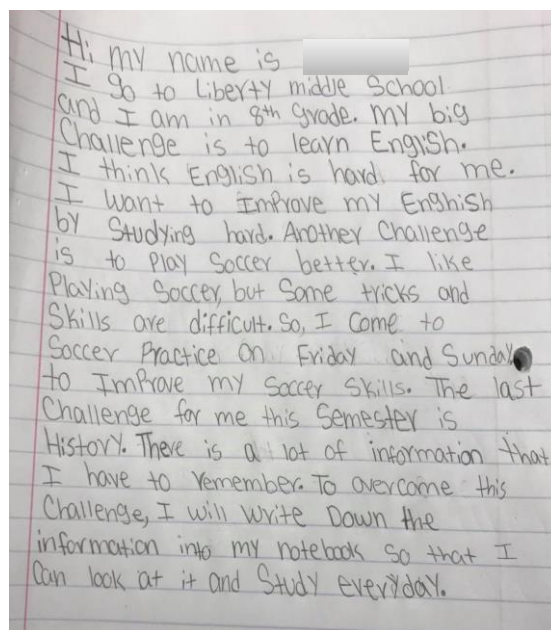 Hi, my name is
I go to Liberty middle School
and I am in 8th grade. My big
Challenge is to learn English.
I think English is hard for me.
I want to Improve my English
by Studying hard. Another Challenge
is to Play Soccer better. I like
Playing Soccer, but Some tricks and
Skills are difficult. So, I Come to
Soccer Practice on Friday and Sunday
to Improve my Soccer Skills. The last
Challenge for me this Semester is
History. There is a lot of information that
I have to remember. To overcome this
Challenge, I will write Down the
information into my notebook So that I
Can look at it and Study everyday.